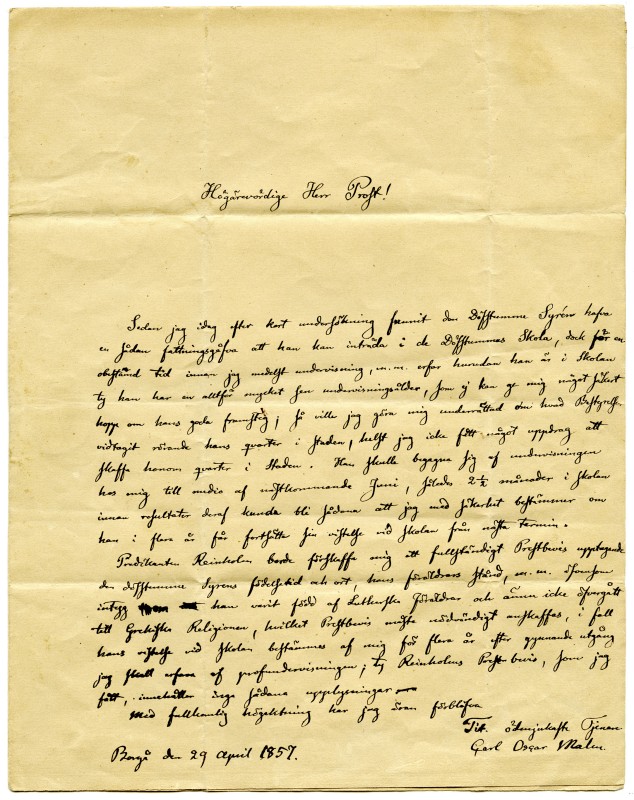 Högärevördige Herr Prost!
Sedan jag idag efter kort undersökning funnit den Döfstumme Syrén hafva
en sådan fattningsgåfva att han kan inträda i de Döfstummas Skola, dock för en
obestämd tid innan jag medelst undervisning, m.m. erfar hurudan han är i Skolan
ty han har en alltför mycket sen undervisningsålder, som ej kan ge mig något säkert
hopp om hans goda framsteg; så ville jag göra mig underrättad om hvad Bestyrelsen
vidtagit rörande hans quarter i staden, helst jag icke fått något uppdrag att
skaffa honom quarter i Staden. Han skulle begagna sig af undervisningen
hos mig till medio af nästkommande Juni, således 2½ månader i skolan
innan resultater deraf kunde bli sådana att jag med säkerhet bestämmer om
han i flera år får fortsätta sin vistelse vid skolan från nästa termin.
Predikanten Reinholm borde förskaffa mig ett fullständigt Prestbevis upptagande
den döfstumme Syrens födelsetid och ort, hans föräldrars stånd, m.m. äfvensom
intygg han varit född af Lutherska föräldrar och ännu icke öfvergått
till Grekiska Religionen, hvilket Prestbevis måste nödvändigt anskaffas, i fall
hans vistelse vid skolan bestämmes af mig för flera år efter gynnande utgång
jag skall erfara af profundervisningen; ty Reinholms Prestbevis, som jag
fått, innehåller inga sådana upplysningar
Med fullkomlig högaktning har jag äran förblifva
Tit. ödmjukaste Tjenare
Borgå den 29 April 1857. Carl Oscar Malm.